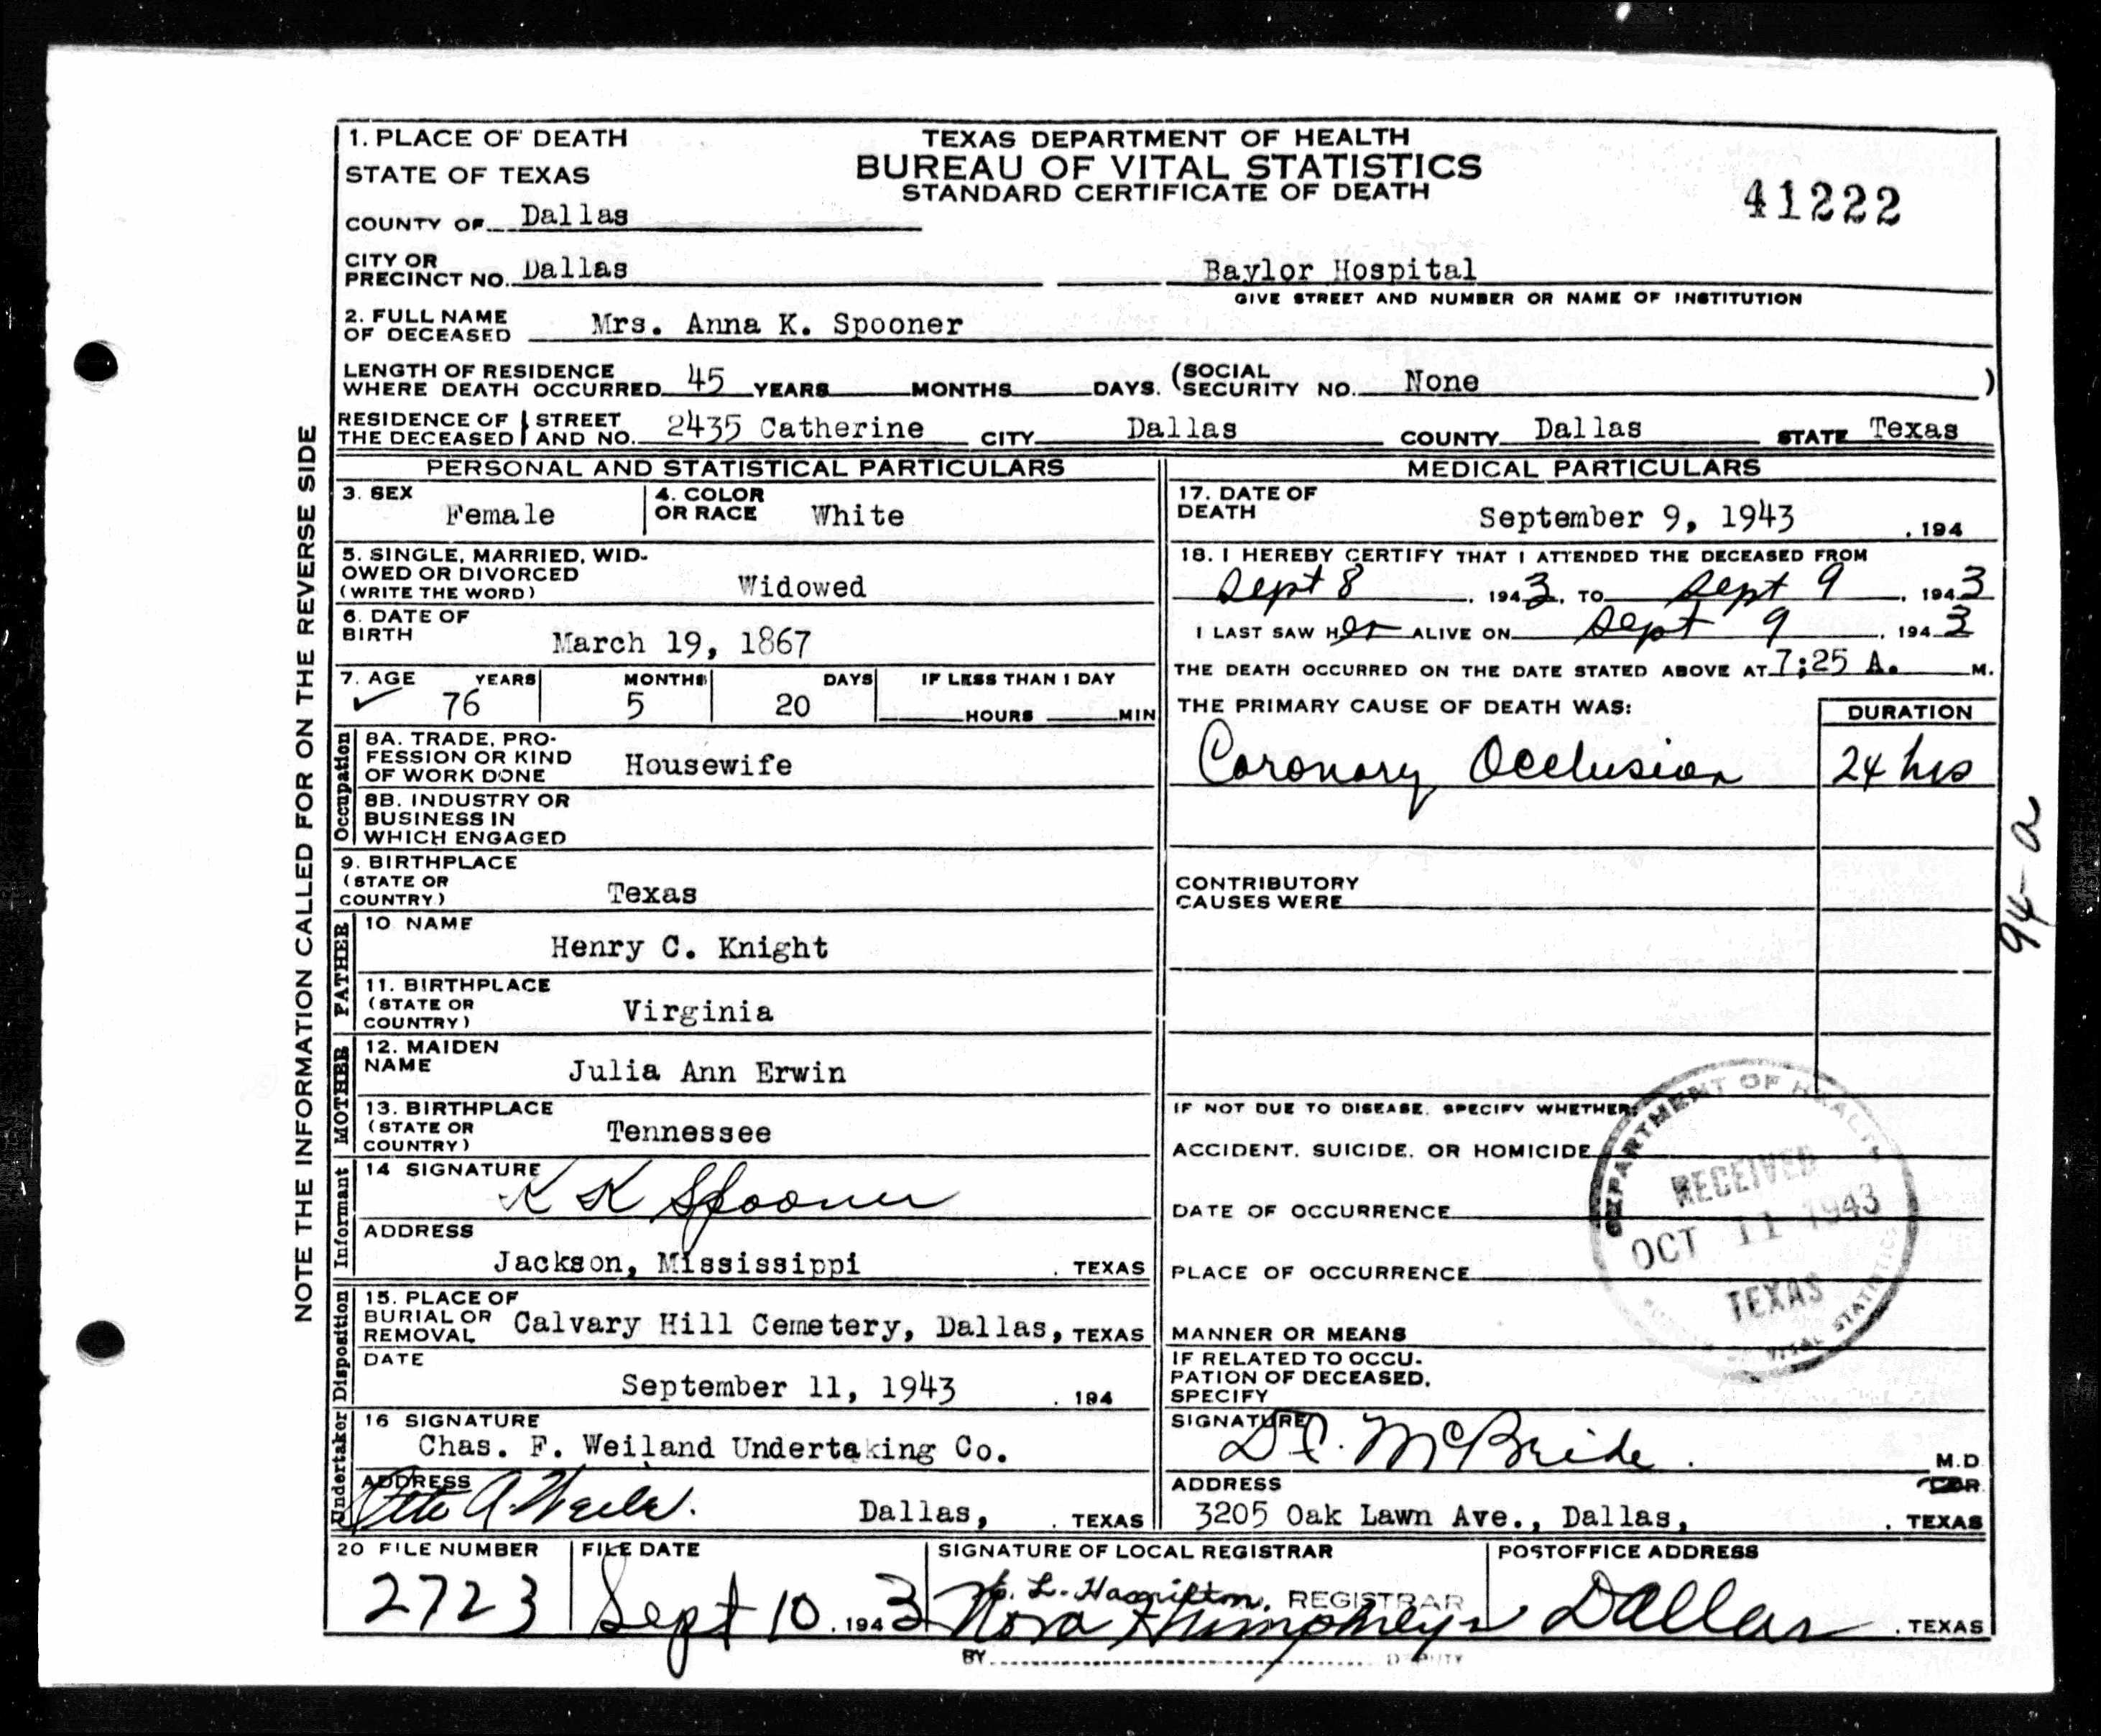 1. PLACE OF DEATH
STATE OF TEXAS
COUNTY OF Dallas
TEXAS DEPARTMENT OF HEALTH
BUREAU OF VITAL STATISTICS
STANDARD CERTIFICATE OF DEATH
41222
CITY OR PRECINCT NO. Dallas
Baylor Hospital
GIVE STREET AND NUMBER OR NAME OF INSTITUTION
2. FULL NAME OF DECEASED Mrs. Anna K. Spooner
LENGTH OF RESIDENCE WHERE DEATH OCCURRED 45 YEARS MONTHS DAYS. (SOCIAL SECURITY NO. None )
RESIDENCE OF THE DECEASED STREET AND NO. 2435 Catherine CITY Dallas COUNTY Dallas STATE Texas
PERSONAL AND STATISTICAL PARTICULARS
3. SEX Female
4. COLOR OR RACE White
5. SINGLE, MARRIED, WIDOWED OR DIVORCED
(WRITE THE WORD) Widowed
6. DATE OF BIRTH March 19, 1867
7. AGE YEARS MONTHS DAYS IF LESS THAN 1 DAY
✓ 76 5 20 HOURS MIN
Occupation
8A. TRADE, PROFESSION OR KIND OF WORK DONE Housewife
8B. INDUSTRY OR BUSINESS IN WHICH ENGAGED
9. BIRTHPLACE
(STATE OR COUNTRY) Texas
FATHER
10 NAME
Henry C. Knight
11. BIRTHPLACE
(STATE OR COUNTRY) Virginia
MOTHER
12. MAIDEN NAME Julia Ann Erwin
13. BIRTHPLACE
(STATE OR COUNTRY) Tennessee
Informant
14 SIGNATURE K K Spooner
ADDRESS
Jackson, Mississippi . TEXAS
Disposition
15. PLACE OF BURIAL OR REMOVAL Calvary Hill Cemetery, Dallas, TEXAS
DATE
September 11, 1943 . 194
Undertaker
16 SIGNATURE
Chas. F. Weiland Undertaking Co.
ADDRESS
Dallas, . TEXAS
MEDICAL PARTICULARS
17. DATE OF DEATH September 9, 1943 , 194
18. I HEREBY CERTIFY THAT I ATTENDED THE DECEASED FROM
Sept 8 , 1943, TO Sept 9 , 1943
I LAST SAW Her ALIVE ON Sept 9 , 1943
THE DEATH OCCURRED ON THE DATE STATED ABOVE AT 7:25 A. M.
THE PRIMARY CAUSE OF DEATH WAS: DURATION
Coronary Occlusion 24 hrs
CONTRIBUTORY CAUSES WERE
IF NOT DUE TO DISEASE, SPECIFY WHETHER:
ACCIDENT, SUICIDE, OR HOMICIDE
DATE OF OCCURRENCE
PLACE OF OCCURRENCE
MANNER OR MEANS
IF RELATED TO OCCUPATION OF DECEASED, SPECIFY
DEPARTMENT OF HEALTH
RECEIVED
OCT 11 1943
TEXAS
VITAL STATISTICS
SIGNATURE McBride M.D.
ADDRESS
3205 Oak Lawn Ave., Dallas, . TEXAS
20 FILE NUMBER
2723
FILE DATE
Sept 10, 1943
SIGNATURE OF LOCAL REGISTRAR
L. Hamilton, REGISTRAR
Nora Humphreys
BY DEPUTY
POSTOFFICE ADDRESS
Dallas . TEXAS
NOTE THE INFORMATION CALLED FOR ON THE REVERSE SIDE
94-a